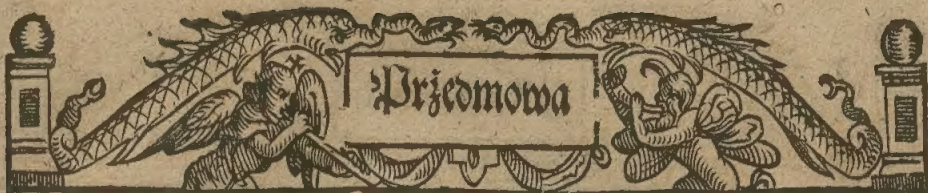 Prżedmowa